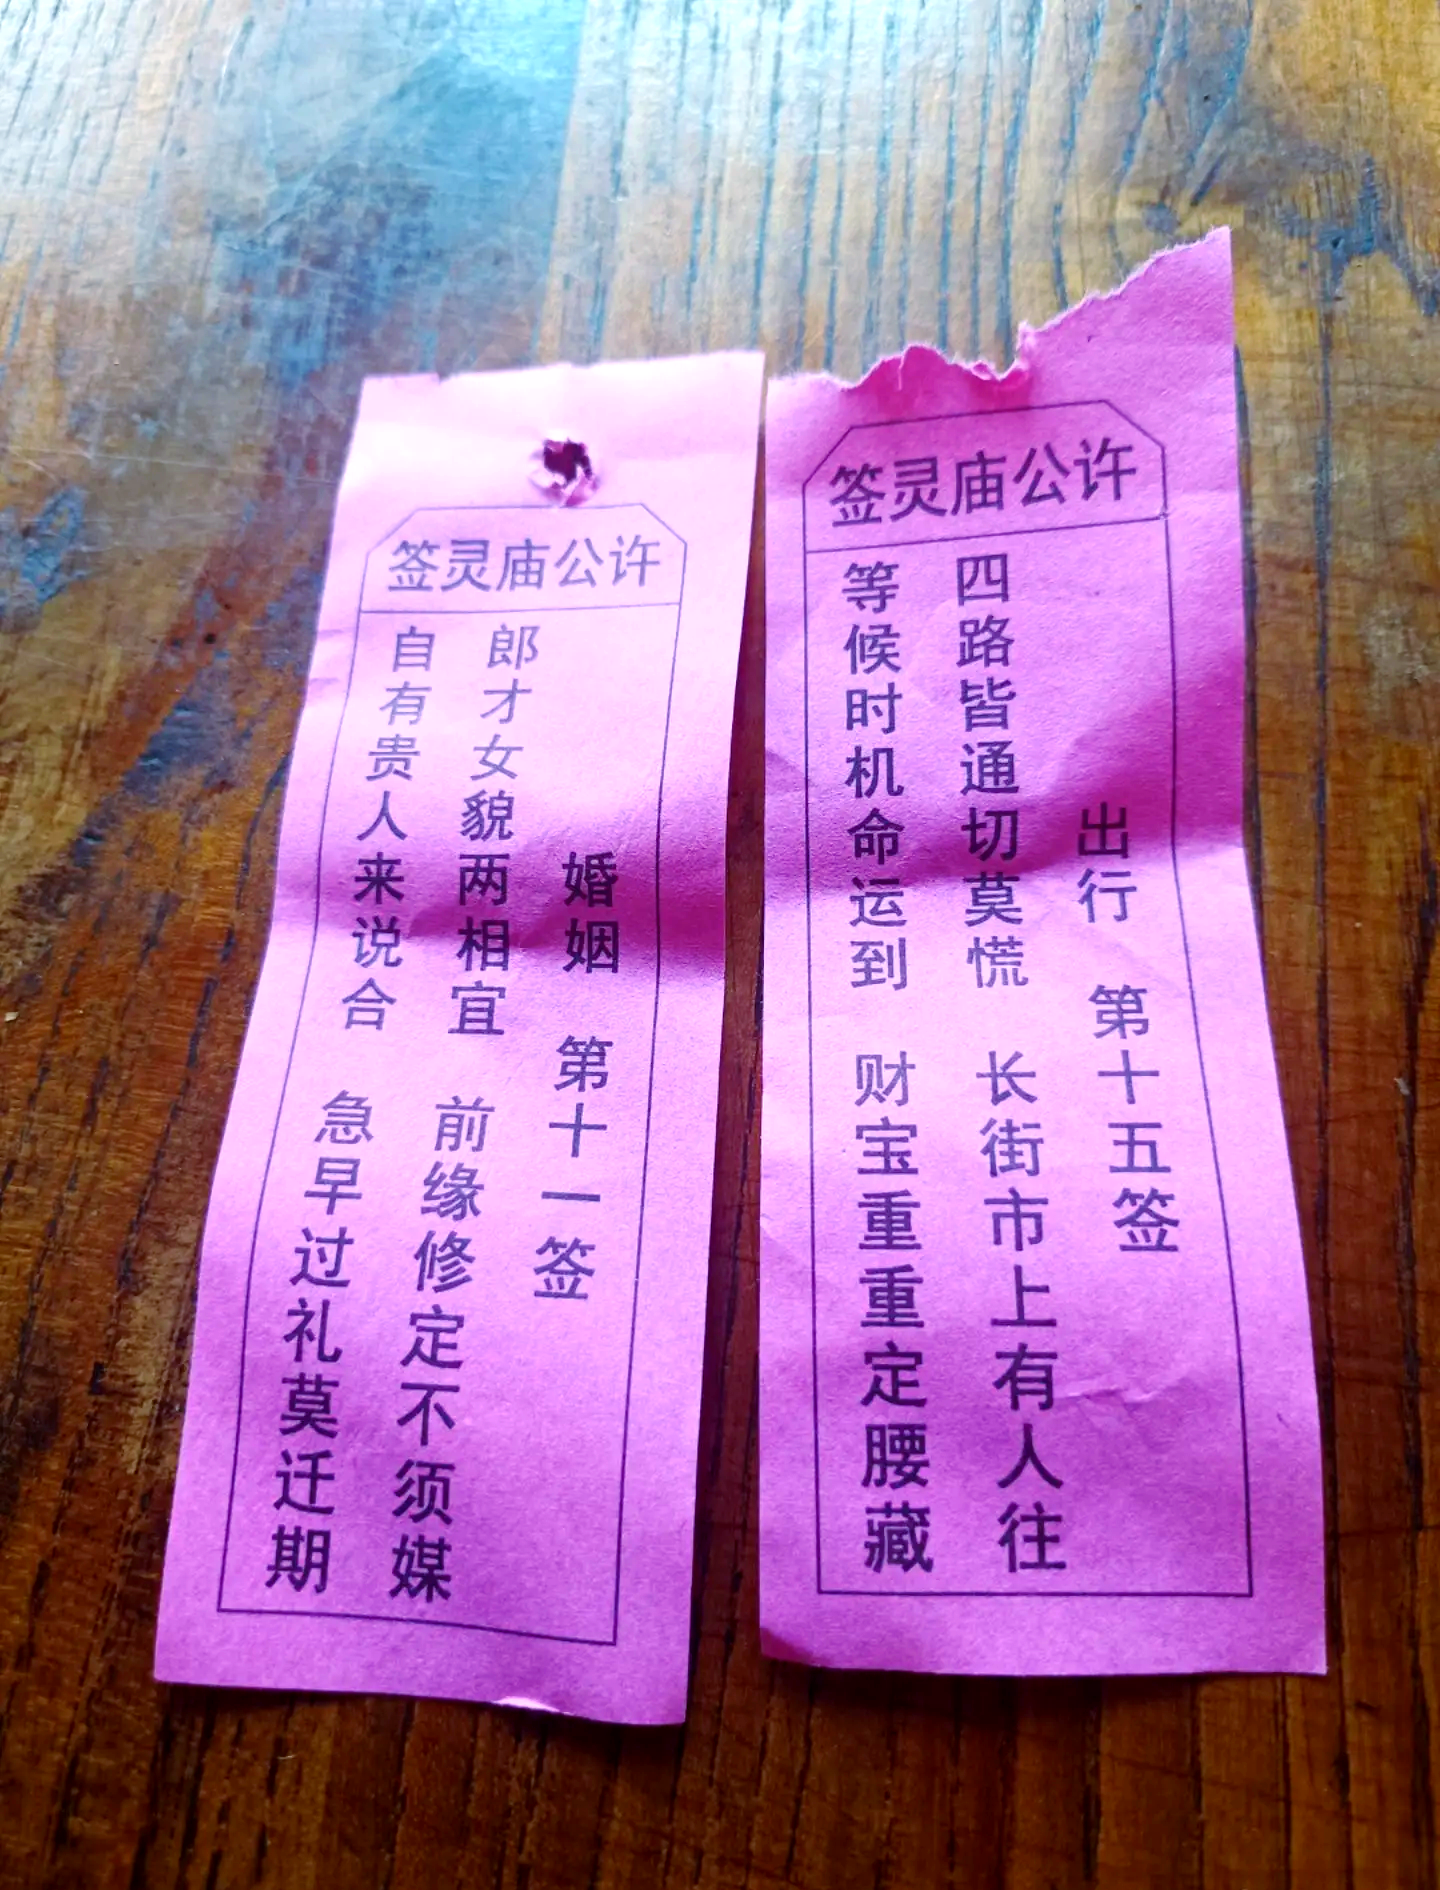 签灵庙公许
婚姻 第十一签
郎才女貌两相宜 前缘修定不须媒
自有贵人来说合 急早过礼莫迁期
签灵庙公许
出行 第十五签
四路皆通切莫慌 长街市上有人往
等候时机命运到 财宝重重定腰藏